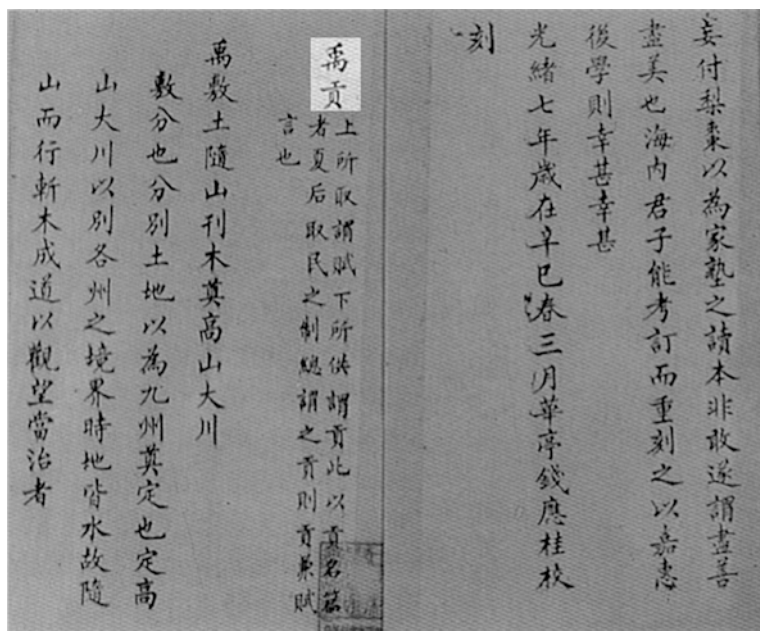 妄付梨棗以為家塾之讀本非敢遂謂盡善
盡美也海內君子能考訂而重刻之以嘉惠
後學則幸甚幸甚
光緒七年歲在辛巳春三月華亭錢應桂校
刻
禹貢
上所取謂賦下所供謂貢此以貢名篇
者夏后取民之制總謂之貢則貢兼賦
言也
禹敷土隨山刊木奠高山大川
敷分也分別土地以為九州奠定也定高
山大川以別各州之境界時地皆水故隨
山而行斬木成道以觀望當治者